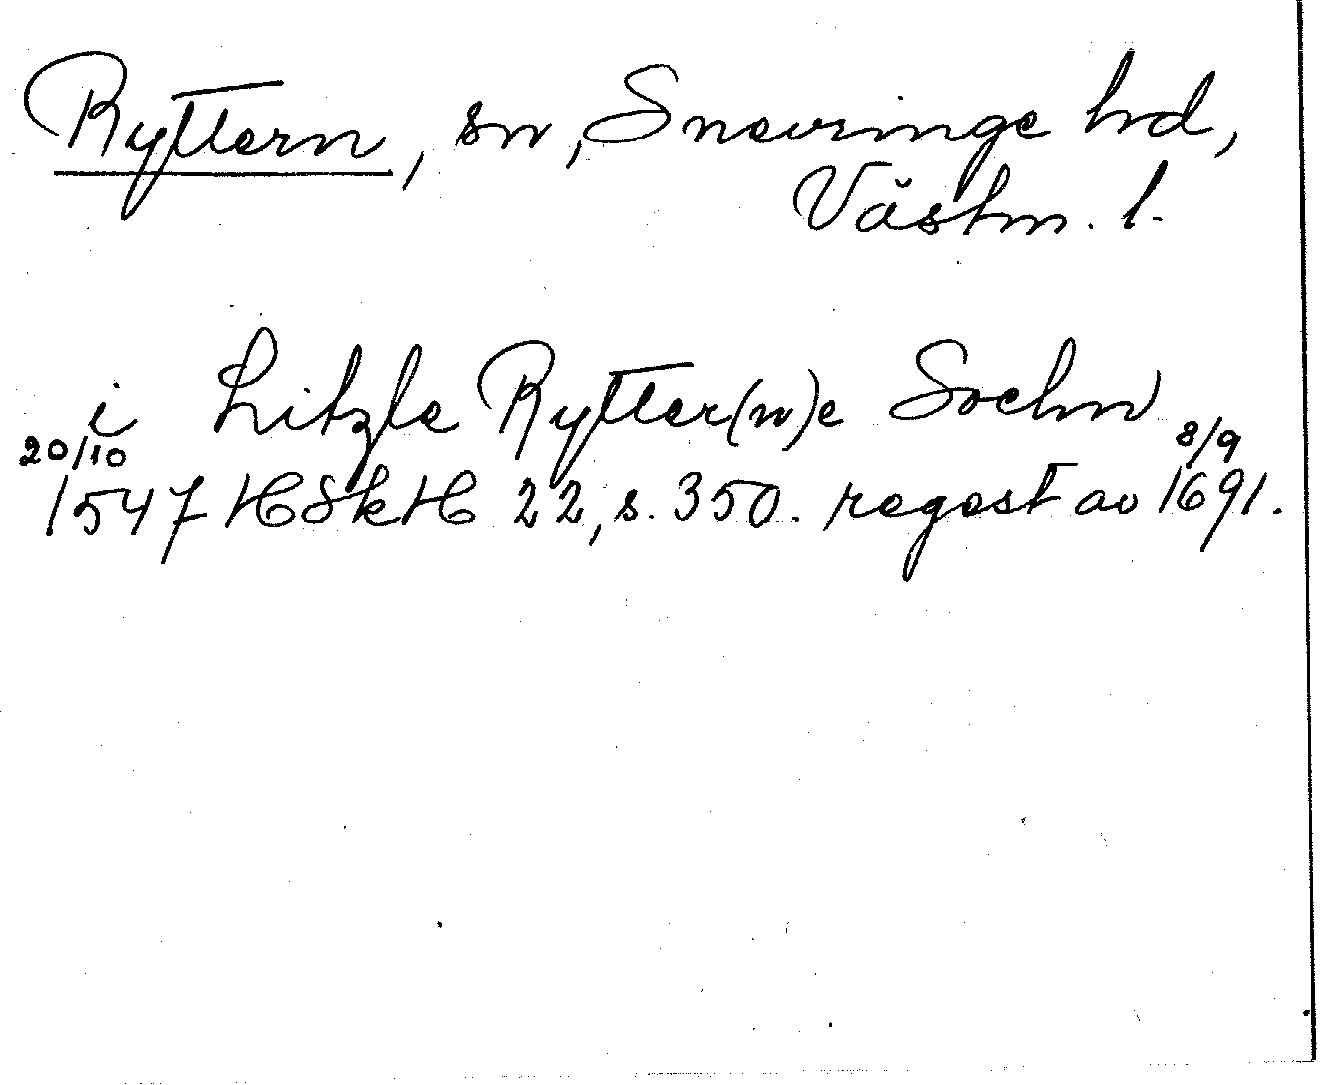 Ryttern, sn, Snevringe hd,
Västm. l.
i Litzle Rytter(n)e Sochn
20/10 8/9
1547 HSkH 22, s. 350. regest av 1691.